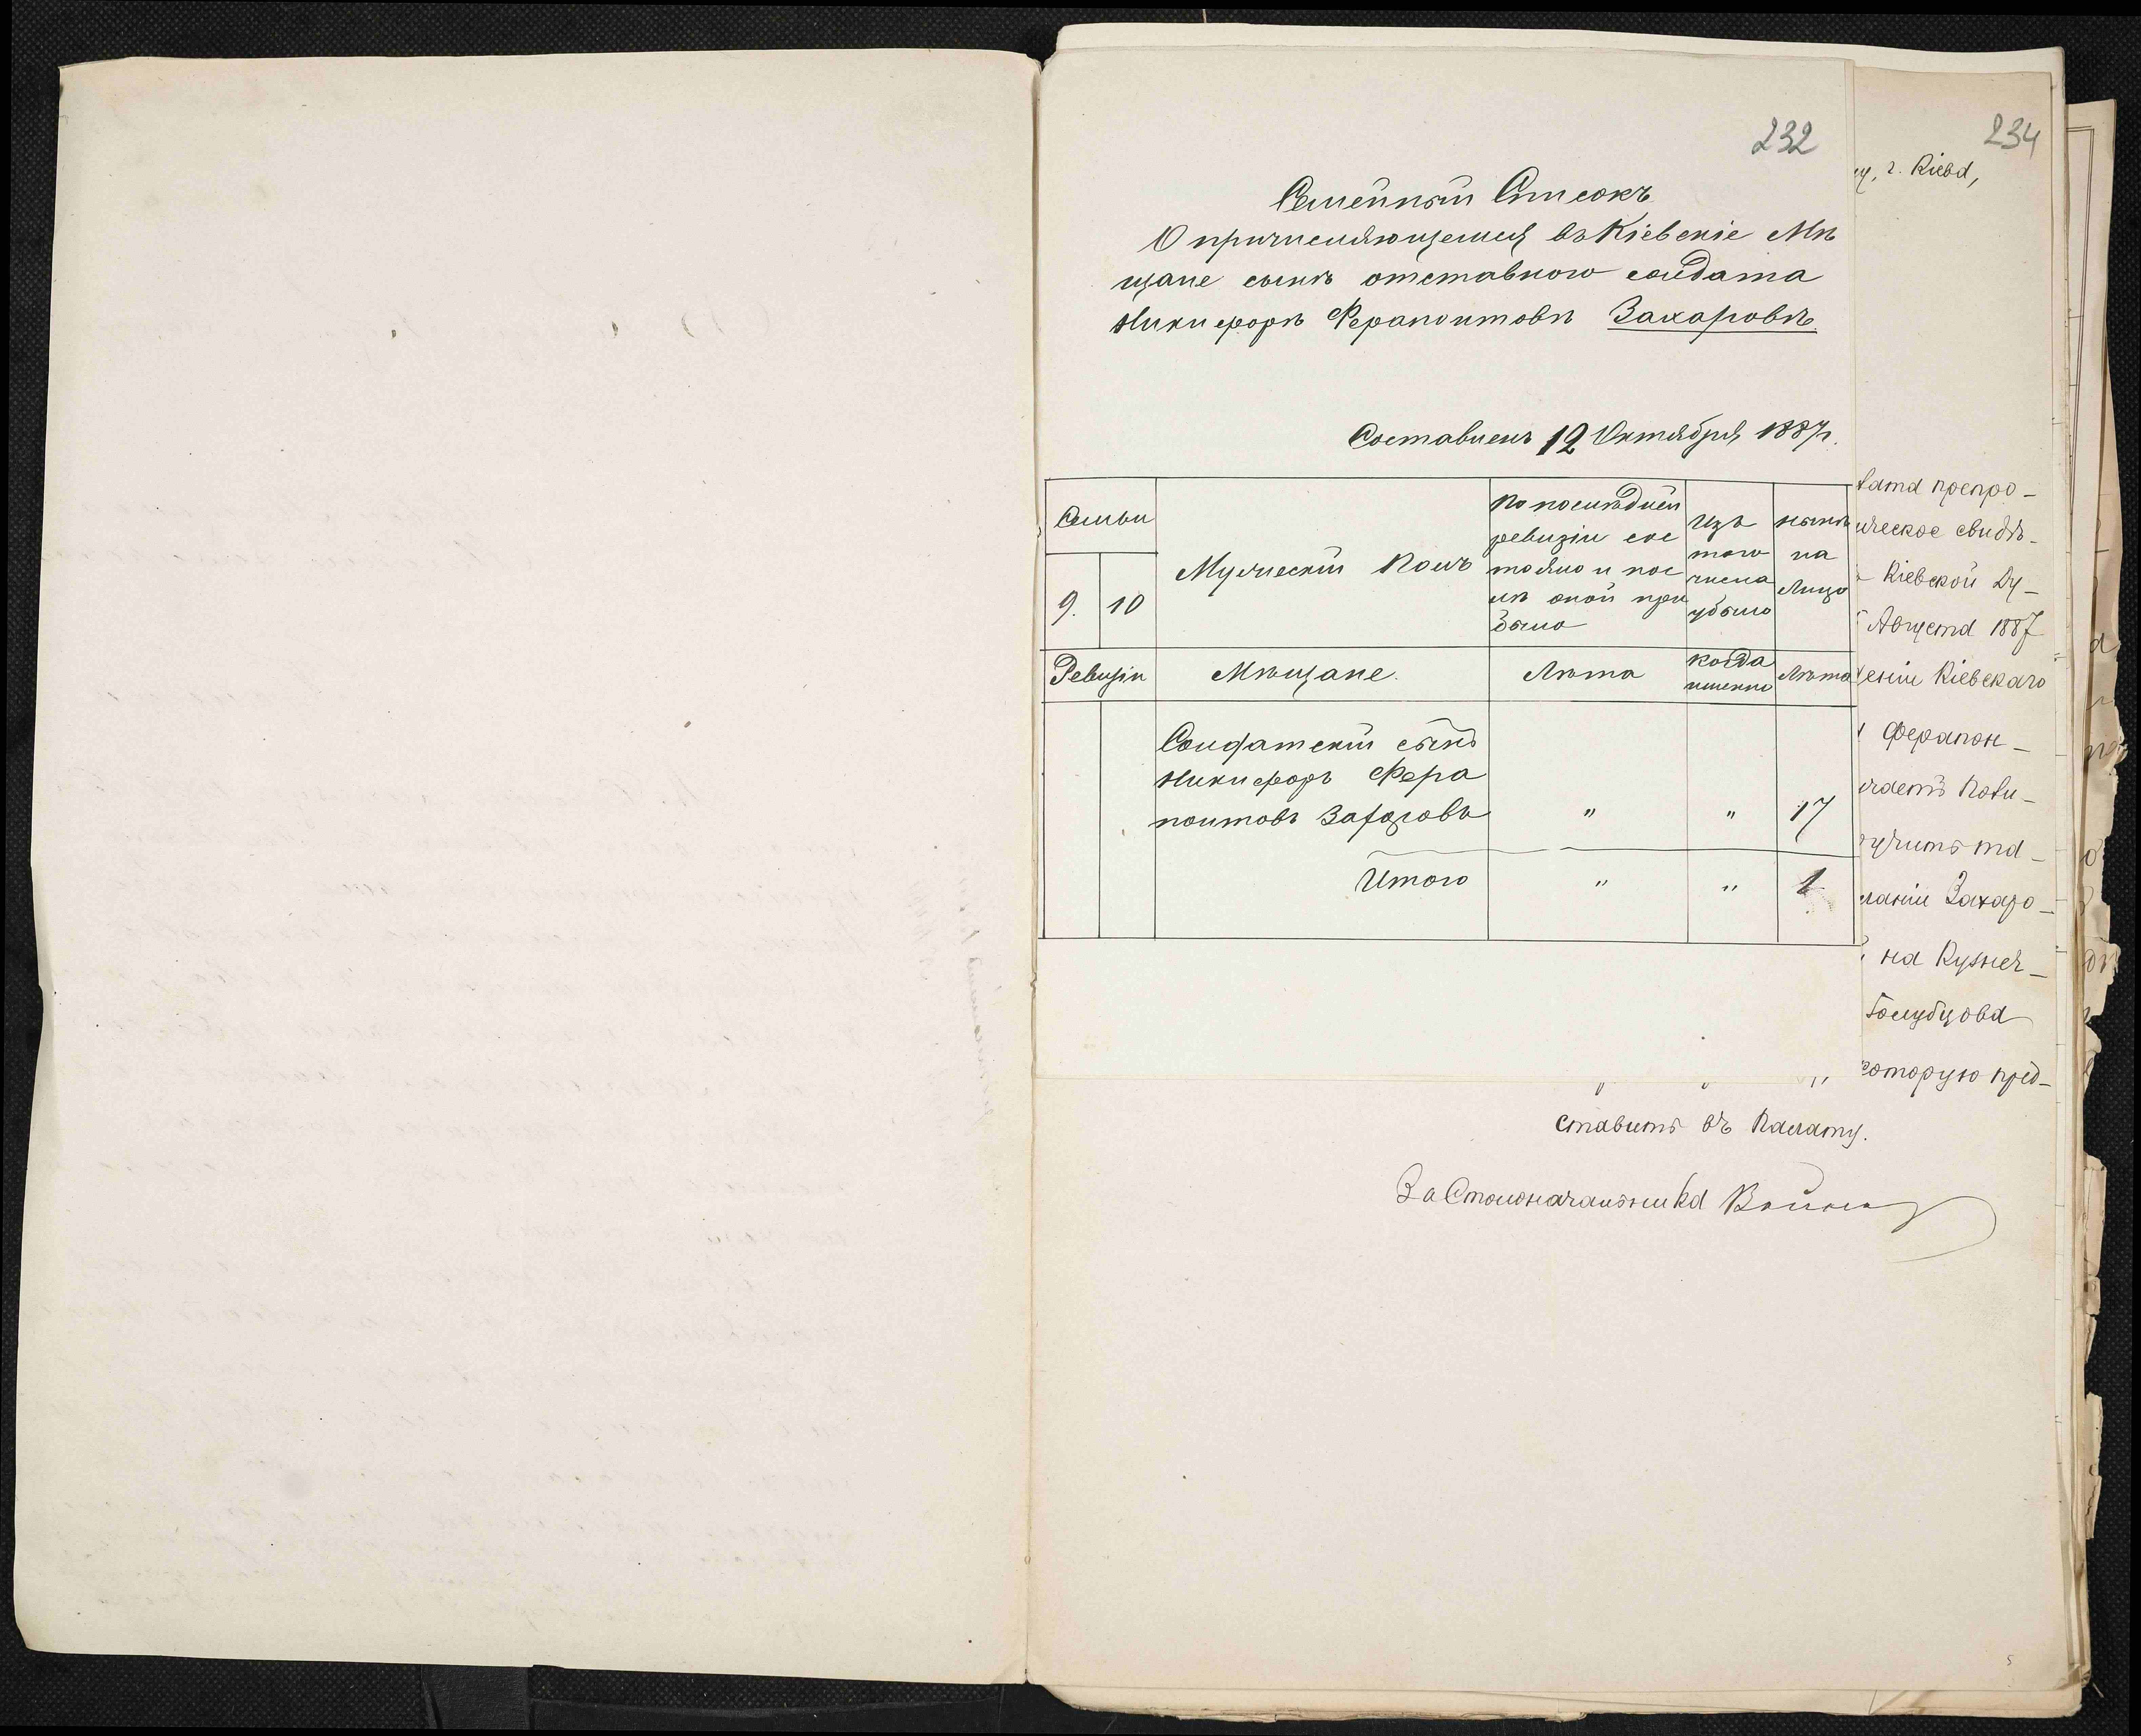 232
Семейный Списокъ
О причисляющемся въ Кіевскіе Мѣ
щане сынѣ отставного солдата
Никифорѣ Ферапонтовѣ Захаровѣ.
Составленъ 12 Октября 1887 г.
Семьи
9. 10
Ревизіи
Мужескій Полъ
По послѣдней
ревизіи сос
тояло и пос
лѣ оной при
было
Изъ
того
числа
убыло
нынѣ
на
Лицо
Мѣщане.
Лѣта
когда
именно
Лѣта
Солдатскій сынъ
Никифоръ Фера
понтовъ Захаровъ " " 17
Итого " " 1
234
г. Кіева,
препро-
ческое свидѣ-
Кіевской Ду-
Августа 1887
Кіевскаго
Ферапон-
Захаро-
на Кузнеч-
Голубцова
которую пред-
ставить въ Палату.
За Столоначальника